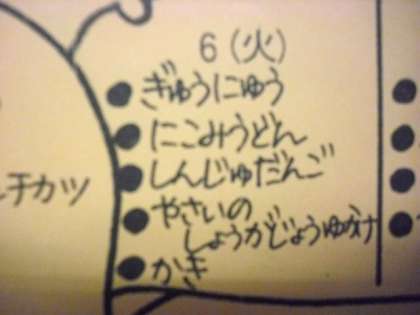 6(火)
●ぎゅうにゅう
●にこみうどん
●しんじゅだんご
チカツ
●やさいの
しょうがじょうゆかけ
●かき